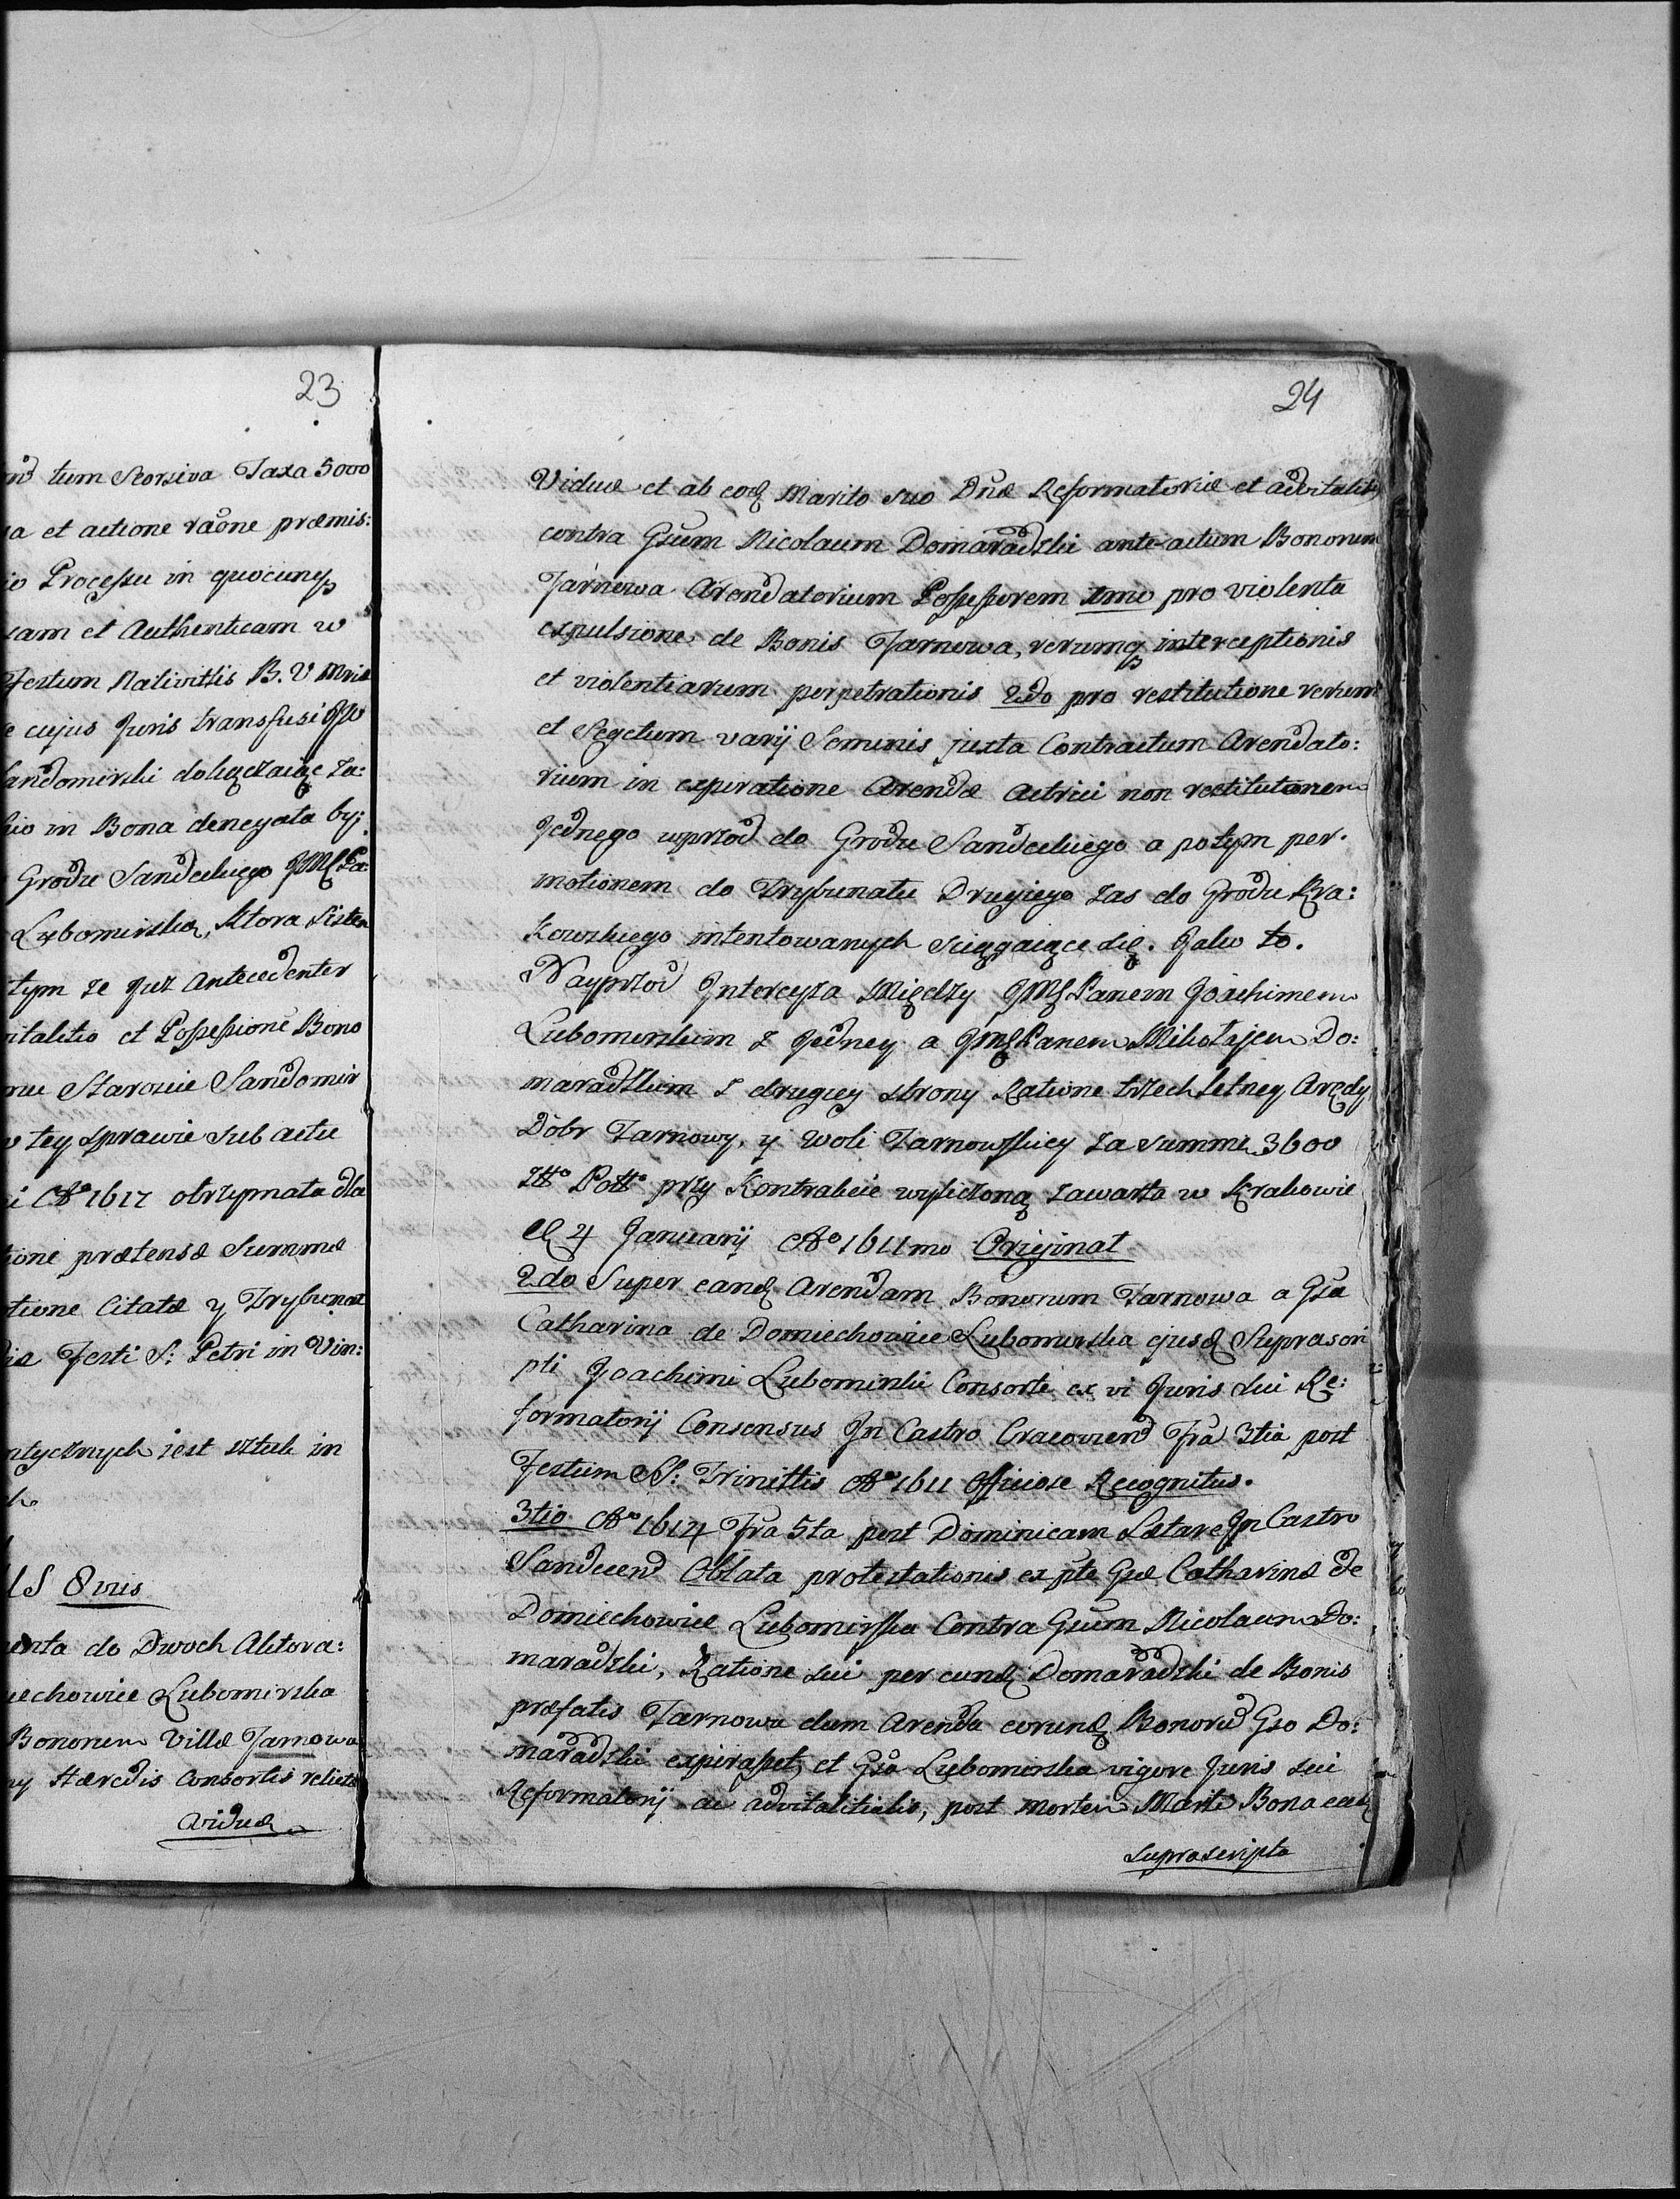 23
tum Seorsiva Taxa 5000
a et actione raõne præmis:
Processu in quocunq
et Authenticam w
Festum Nativittis B. V Mriæ
cujus Juris transfusi
Sandomirski dokączaiąc za:
in Bona denegata by:
Grodu Sandeckiego JMS Pa:
Lubomirska, ktora
tym ze Juz Antecedenter
et Possessione Bono
Staroscie Sandomir
w tey sprawie sub actu
Ao 1617 otrzymata dla
prætensæ Summæ
Citatæ y Trybunat
Festi S: Petri in Vin:
iest sztuk in
8vus
do Dwoch Aktora:
Lubomirska
Bonorum Villæ Tarnowa
Hæredis Consortis relictæ
Viduæ
24
Viduæ et ab eod Marito suo Dnæ Reformatoriæ et advitalit
contra Gsum Nicolaum Domaradzki ante-actum Bonorum
Tarnowa Arendatorium Possessorem 1mo pro violenta
expulsione de Bonis Tarnowa, rerumq interceptionis
et violentiarum perpetrationis 2do pro restitutione rerum
et Segetum varij Seminis juxta Contractum Arendato:
rium in expiratione Arendæ Actrici non restitutorum
Jednego wprzod do Grodu Sandeckiego a potym per
motionem do Trybunatu Drugiego zas do Grodu Kra:
kowskiego intentowanych sciągaiące się. Jako to.
Nayprzod Intercyza Między JMS Panem Joachimem
Lubomirskim z Jedney a JMS Panem Mikołajem Do:
maradzkim z drugiey strony Ratione trzechletney Arędy
Dobr Tarnowy, y Woli Tarnowskiey za summę 3600
Złło Polło przy Kontrakcie wyliczoną zawarta w Krakowie
d 4 Januarij Ao 1611mo Originat
2do Super eand Arendam Bonorum Tarnowa a Gsa
Catharina de Domiechowice Lubomirska ejusd Suprascri
pti Joachimi Lubomirski Consorte ex vi Juris sui Re:
formatorij Consensus In Castro Cracovien Fra 3tia post
Festum SS: Trinittis Ao 1611 Officiose Recognitus.
3tio Ao 1614 Fra 5ta post Dominicam Lætare In Castro
Sandecen Oblata protestationis ex pte Gsæ Catharinæ de
Domiechowice Lubomirska Contra Gsum Nicolaum Do:
maradzki, Ratione sui per eund Domaradzki de Bonis
præfatis Tarnowa dum Arenda eorund Bonorũ Gso Do:
maradzki expirasset, et Gsa Lubomirska vigore Juris sui
Reformatorij ac advitalitialis, post mortem Mariti Bona ead
suprascripta